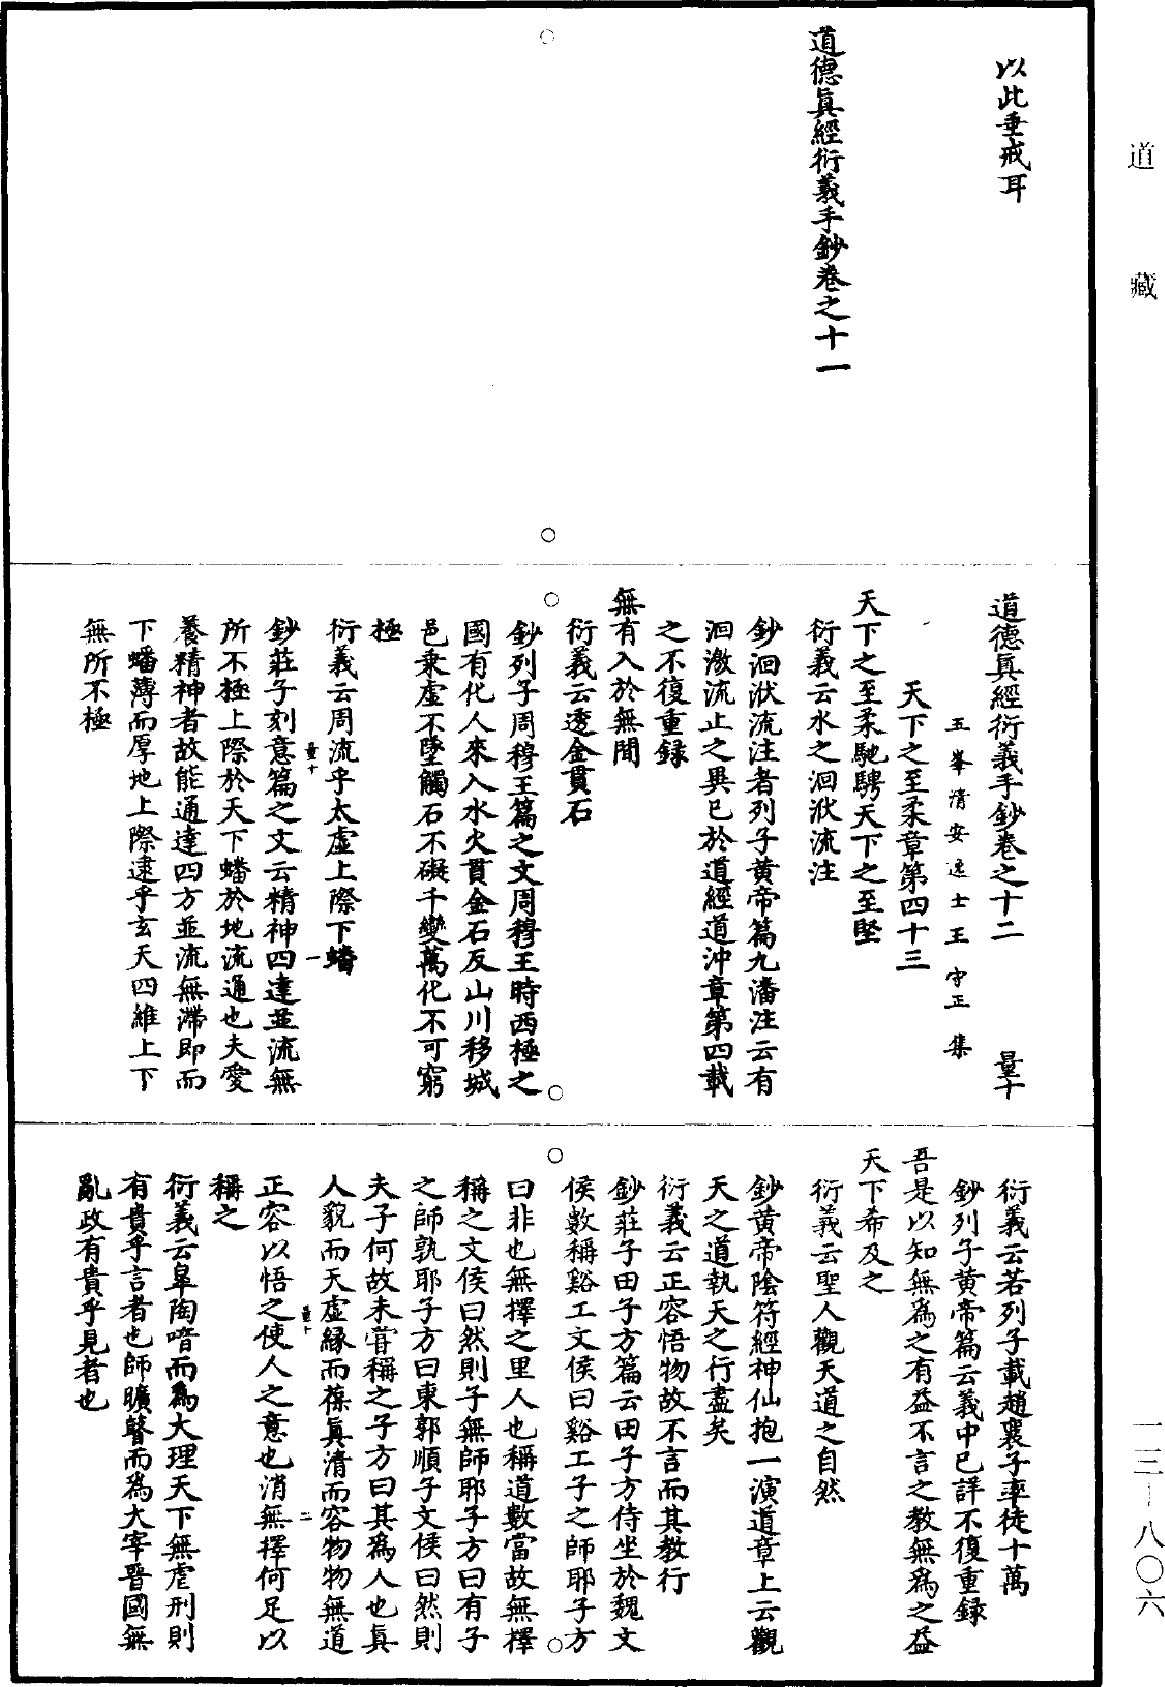 道藏
以此垂戒耳
道德眞經衍義手鈔卷之十一
道德眞經衍義手鈔卷之十二 量十
五峯清安逸士王守正集
天下之至柔章第四十三
天下之至柔馳騁天下之至堅
衍義云水之洄洑流注
鈔洄洑流注者列子黄帝篇九潘注云有
洄激流止之異已於道經道沖章第四載
之不復重録
無有入於無間
衍義云透金貫石
鈔列子周穆王篇之文周穆王時西極之
國有化人來入水火貫金石反山川移城
邑乗虛不墜觸石不礙千變萬化不可窮
極
衍義云周流乎太虛上際下蟠
量十 一
鈔莊子刻意篇之文云精神四達並流無
所不極上際於天下蟠於地流通也夫愛
養精神者故能通達四方並流無滯即而
下蟠薄而厚地上際逮乎玄天四維上下
無所不極
衍義云若列子載趙襄子率徒十萬
鈔列子黄帝篇云義中已詳不復重録
吾是以知無爲之有益不言之教無爲之益
天下希及之
衍義云聖人觀天道之自然
鈔黄帝陰符經神仙抱一演道章上云觀
天之道執天之行盡矣
衍義云正容悟物故不言而其教行
鈔莊子田子方篇云田子方侍坐於魏文
侯數稱谿工文侯曰谿工子之師耶子方
曰非也無擇之里人也稱道數當故無擇
稱之文侯曰然則子無師耶子方曰有子
之師孰耶子方曰東郭順子文侯曰然則
夫子何故未甞稱之子方曰其爲人也真
人貌而天虛緣而葆眞清而容物物無道
量十 二
正容以悟之使人之意也消無擇何足以
稱之
衍義云臯陶喑而爲大理天下無虐刑則
有貴乎言者也師曠瞽而爲大宰晋國無
亂政有貴乎見者也
一三—八〇六